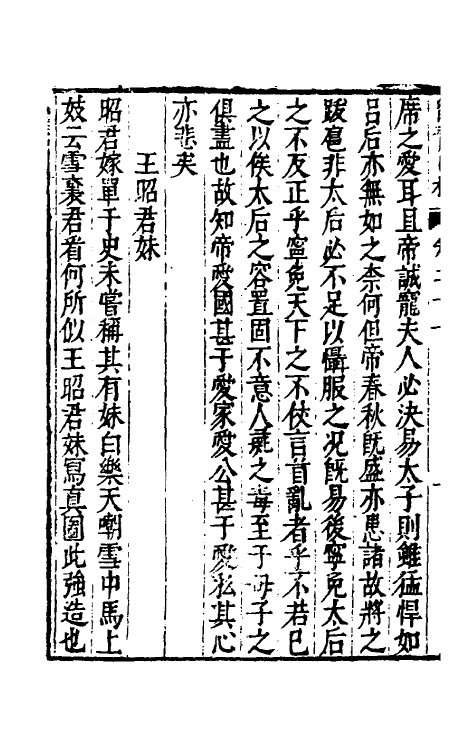 席之愛耳且帝誠寵夫人必決易太子則雖猛悍如
呂后亦無如之柰何但帝春秋旣盛亦患諸故將之
跋扈非太后必不足以懾服之况旣易後寧免太后
之不反正乎寧免天下之不使言首亂者乎不若已
之以俟太后之容置固不意人彘之毒至于母子之
俱盡也故知帝愛國甚于愛家愛公甚于愛私其心
亦悲矣
王昭君妹
昭君嫁單于史未嘗稱其有妹白樂天嘲雪中馬上
妓云雪裏君看何所似王昭君妹寫真圖此強造也